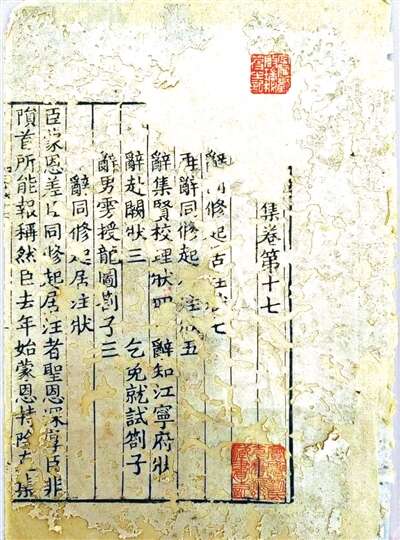 集卷第十七
同修起居注狀七
再辭同修起注狀五
辭集賢校理狀四 辭知江寧府狀
辭赴闕狀三 乞免就試劄子
辭男雱授龍圖劄子三
辭同修起居注狀
臣蒙恩差臣同修起居注者聖恩深厚臣非
隕首所能報稱然臣去年始蒙恩特除集